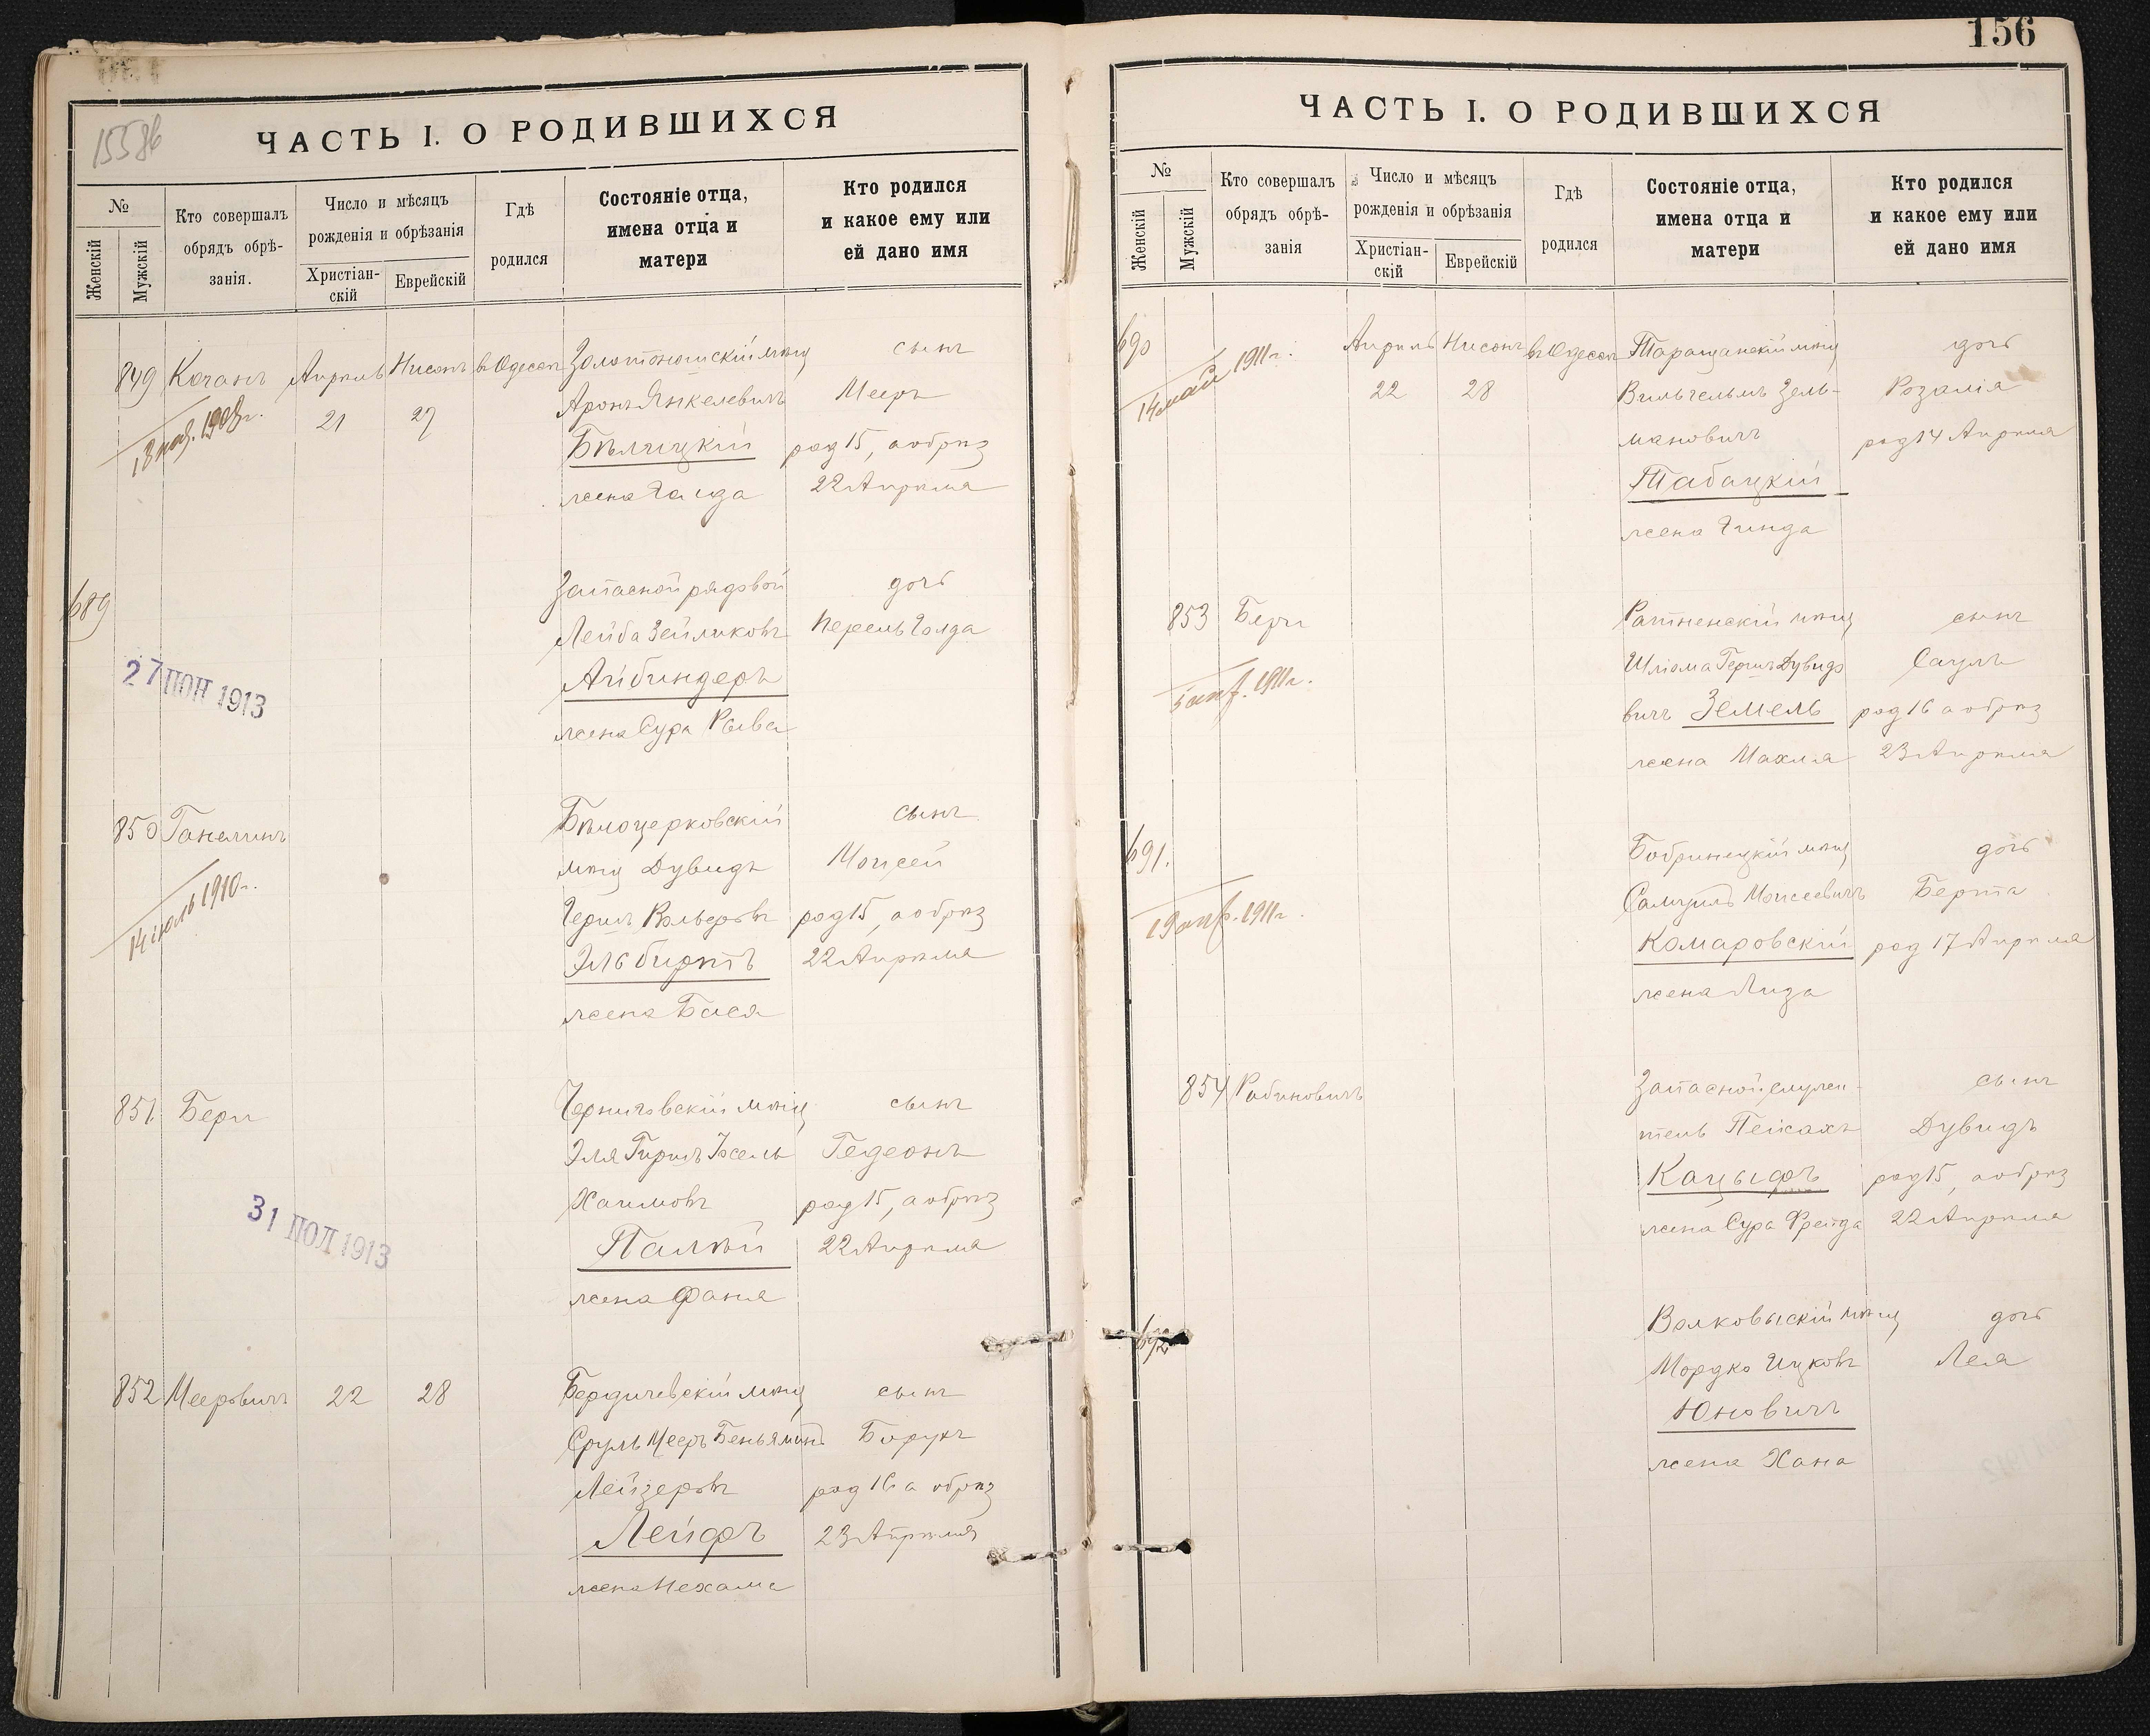 155об
ЧАСТЬ I. О РОДИВШИХСЯ
№
Женскій
Мужскій
Кто совершалъ
обрядъ обрѣ-
занія.
Число и мѣсяцъ
рожденія и обрѣзанія
Христіан-
скій
Еврейскій
Гдѣ
родился
Состояніе отца,
имена отца и
матери
Кто родился
и какое ему или
ей дано имя
849 Коганъ Апрѣль Нисонъ въ Одессѣ Золотоношскій мѣщ сынъ
21 27 Аронъ Янкелевичъ Мееръ
1908г.
Бѣлицкій род 15, а обрѣз
жена 22 Апрѣля
689 Запасной рядовой дочь
Лейба Зейликовъ Перель Голда
Айбиндеръ
жена Сура Ривка
27 ІЮН 1913
850 Ганелинъ Бѣлоцерковскій сынъ
мѣщ Дувидъ Моисей
14 іюль 1910г.
Гершъ Вольфовъ род 15, а обрѣз
Эльбиртъ 22 Апрѣля
жена Бася
851. Бери Черниговскій мѣщ сынъ
Эля Гиршъ Іосель Гедеонъ
Хаимовъ род 15, а обрѣз
31 ІЮЛ 1913
Палѣй 22 Апрѣля
жена Фаня
852 Мееровичъ 22 28 Бердичевскій мѣщ сынъ
Сруль Мееръ Беньяминъ Борухъ
Лейзеровъ род 16 а обрѣз
Лейфъ 23 Апрѣля
жена Нехама
156
ЧАСТЬ I. О РОДИВШИХСЯ
№
Женскій
Мужскій
Кто совершалъ
обрядъ обрѣ-
занія
Число и мѣсяцъ
рожденія и обрѣзанія
Христіан-
скій
Еврейскій
Гдѣ
родился
Состояніе отца,
имена отца и
матери
Кто родился
и какое ему или
ей дано имя
690 Апрѣль Нисонъ въ Одессѣ Таращанскій мѣщ дочь
14 май 1911г.
22 28 Вильгельмъ Зель- Розалія
мановичъ род 14 Апрѣля
Табацкій
жена Гинда
853 Бери Ратненскій мѣщ сынъ
Шліома Гершъ Дувидо Саулъ
1911г.
вичъ Земель род 16 а обрѣз
жена Махля 23 Апрѣля
691. Бобринецкій мѣщ дочь
Самуилъ Моисеевичъ Берта
1911г.
Комаровскій род 17 Апрѣля
жена Лиза
854 Рабиновичъ Запасной служи-
сынъ
тель Пейсахъ Дувидъ
Кацыфъ род 15, а обрѣз
жена Сура Фрейда 22 Апрѣля
692 Волковыскій мѣщ дочь
Мордко Ицковъ Лея
Юновичъ
жена Хана